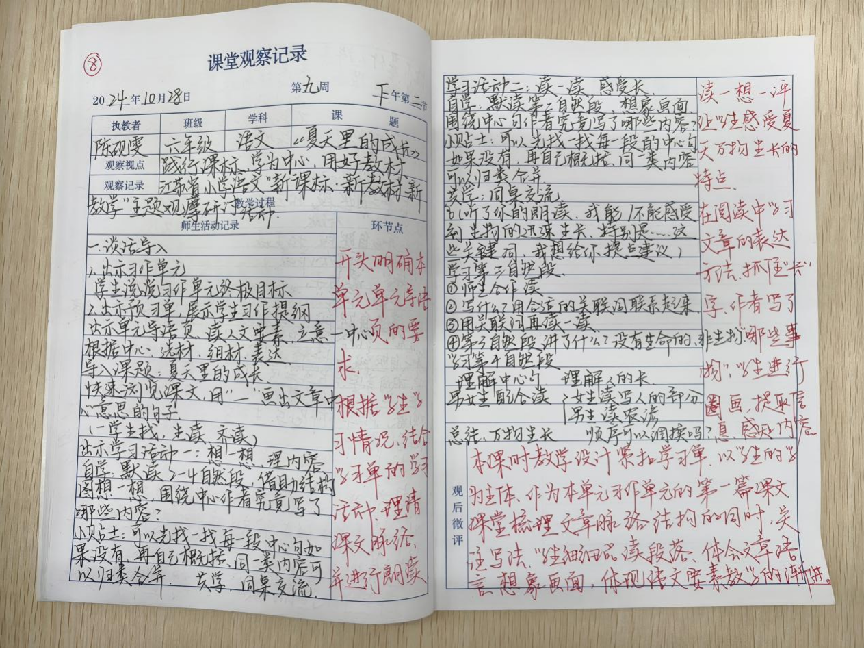 8
课堂观察记录
2024年10月28日 第九周 下午第二节
执教者 班级 学科 课题
陈砚雯 六年级 语文 《夏天里的成长》
观察视点 践行课标 学为中心 用好教材
观察记录 江苏省小学语文"新课标·新教材·新
教学"主题观摩研讨活动
教学过程
师生活动记录 环节点
一.谈话导入
1.出示习作单元
学生说说习作单元终极目标
2.出示预习单,展示学生习作提纲
出示单元导语页,读人文要素,立意——中心
根据中心,选材,组材,表达
导入课题:夏天里的成长
快速浏览课文,用"—"画出文章中
心意思的句子
(一学生找,生读,齐读)
出示学习活动一:想一想,理内容
自学:默读2-4自然段,借助结构
图想一想,围绕中心作者究竟写了
哪些内容?
小贴士:可以先找一找每一段中心句如
果没有,再自己概括,同一类内容可
以归类合并 共学:同桌交流
开头明确本
单元单元导语
页的要
求
根据学生学
习情况,结合
学习单的学习
活动一理清
课文脉络,
并进行朗读
学习活动二:读一读 感受长
自学:默读第二自然段,想象画面
围绕中心句作者究竟写了哪些内容?
小贴士:可以先找一找每一段的中心句
如果没有,再自己概括,同一类内容
可以归类合并
共学:同桌交流
听了你的朗读,我能/不能感受
到生物的迅速生长,特别是……这
些关键词,我想给你提点建议
学习第三自然段
①师生合作读
②写什么?用合适的关联词联系起来
③用关联词再读一读
④第三自然段讲了什么?没有生命的,非生物
学习第4自然段
理解中心句 理解人的长
男女生配合读 女生读写人的部分
男生读要读
总结:万物生长 顺序可以调换吗?
读一想一评
让学生感受夏
天万物生长的
特点.
在阅读中学习
文章的表达
方法,抓住"长"
字,作者写了
哪些事
物,学生进行
圈画,提取信
息,感知内容
观后微评
本课时教学设计紧扣学习单,以学生的学
为主体,作为本单元习作单元的第一篇课文
课堂梳理文章脉络结构的同时,关
注写法,学生细细品读段落,体会文章语
言,想象画面,体现语文要素教学的渐进.